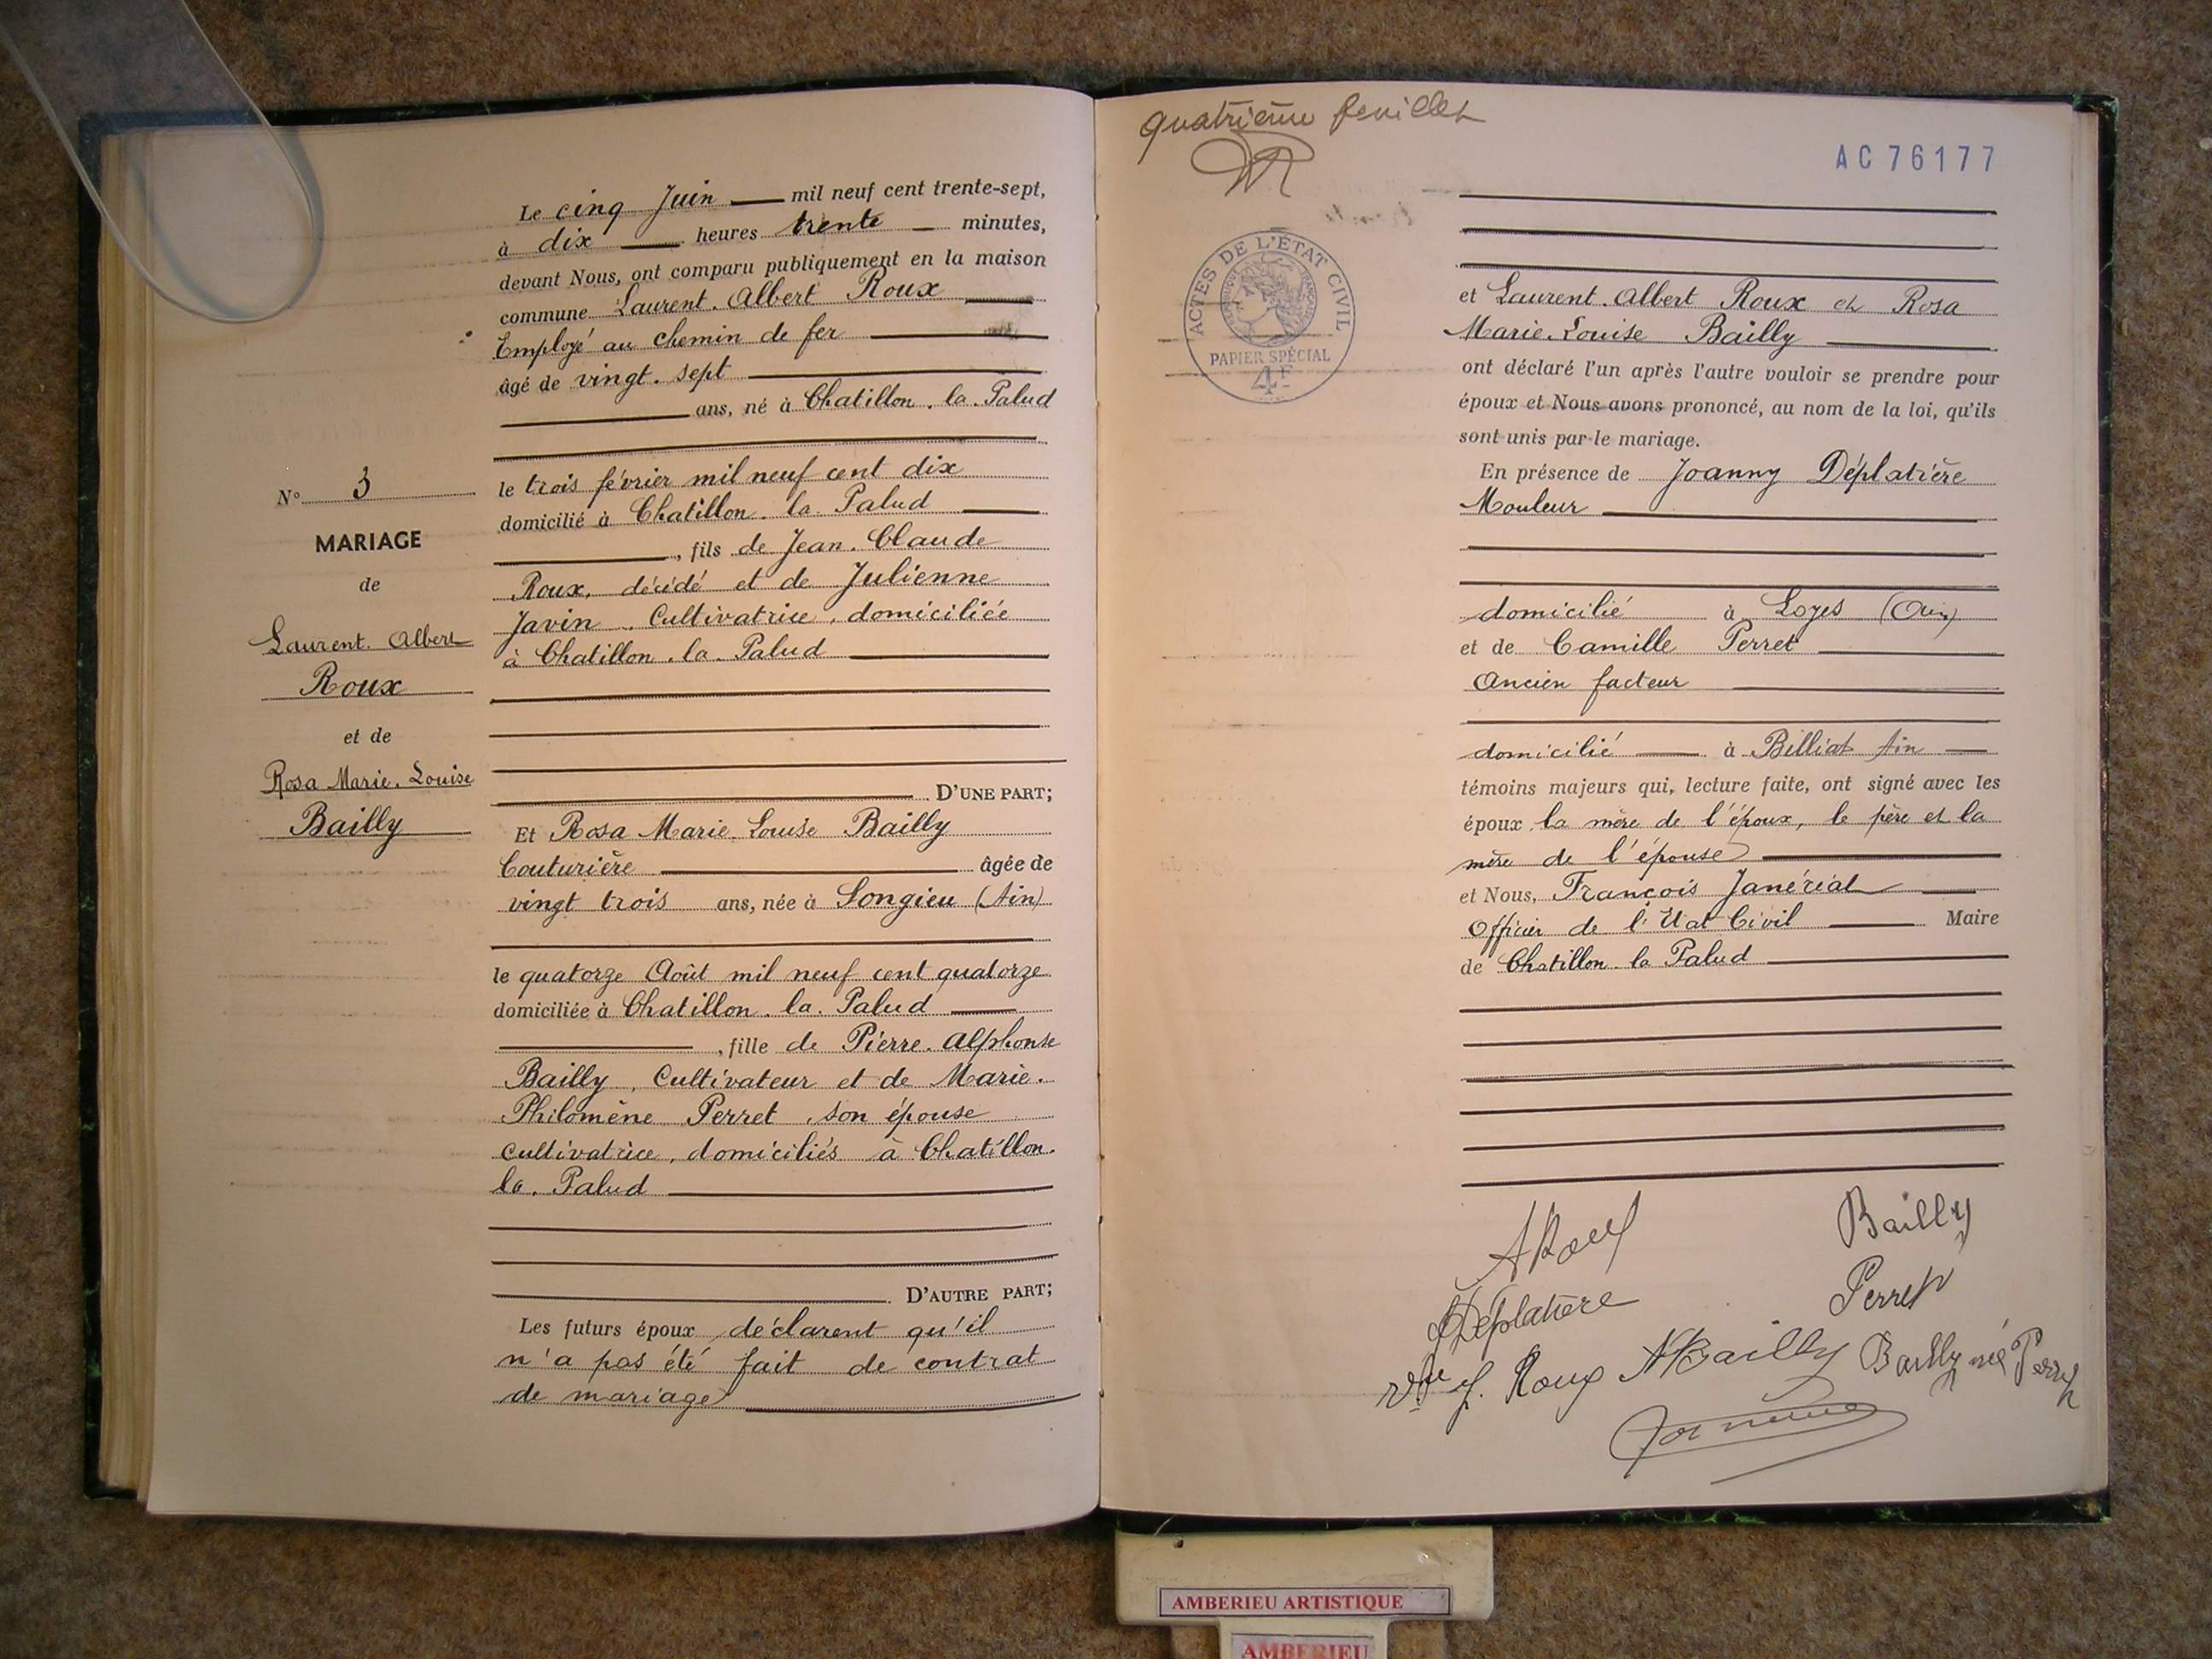 Le cinq Juin mil neuf cent trente-sept,
à dix heures trente minutes,
devant Nous, ont comparu publiquement en la maison
commune Laurent. Albert Roux
Employé au chemin de fer
âgé de vingt. sept
ans, né à Chatillon. la. Palud
le trois février mil neuf cent dix
domicilié à Chatillon. la. Palud
, fils de Jean. Claude
Roux, décédé et de Julienne
Javin. Cultivatrice, domiciliée
à Chatillon. la. Palud
D'UNE PART;
N° 3
MARIAGE
de
Laurent. Albert
Roux
et de
Rosa Marie. Louise
Bailly
Et Rosa Marie. Louise Bailly
Couturière âgée de
vingt trois ans, née à Songieu (Ain)
le quatorze Août mil neuf cent quatorze
domiciliée à Chatillon. la. Palud
, fille de Pierre. Alphonse
Bailly, Cultivateur et de Marie.
Philomène Perret, son épouse
cultivatrice, domiciliés à Chatillon.
la. Palud
D'AUTRE PART;
Les futurs époux déclarent qu'il
n'a pas été fait de contrat
de mariage
quatrième feuillet
AC76177
ACTES DE L'ÉTAT CIVIL
PAPIER SPÉCIAL
4F
et Laurent. Albert Roux et Rosa
Marie. Louise Bailly
ont déclaré l'un après l'autre vouloir se prendre pour
époux et Nous avons prononcé, au nom de la loi, qu'ils
sont unis par le mariage.
En présence de Joanny Déplatière
Mouleur
domicilié à Loyes (Ain)
et de Camille Perret
Ancien facteur
domicilié à Billiat Ain
témoins majeurs qui, lecture faite, ont signé avec les
époux, la mère de l'époux, le père et la
mère de l'épouse
et Nous, François Janériat
Officier de l'Etat Civil Maire
de Chatillon. la Palud
A Roux
Bailly
Perret
J Déplatière
Vve J. Roux
A Bailly
Bailly née Perret
AMBERIEU ARTISTIQUE
AMBERIEU